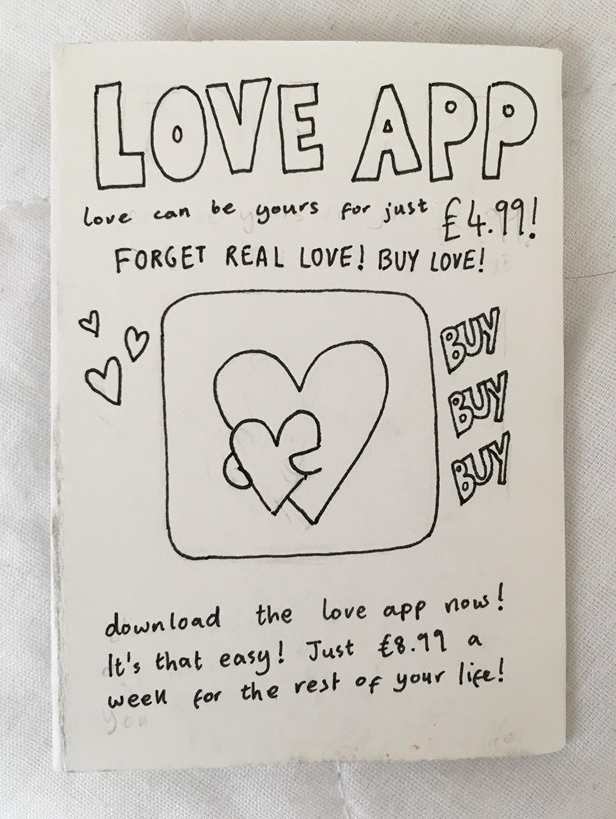 LOVE APP
love can be yours for just £4.99!
FORGET REAL LOVE! BUY LOVE!
BUY
BUY
BUY
download the love app now!
It's that easy! Just £8.99 a
week for the rest of your life!
you